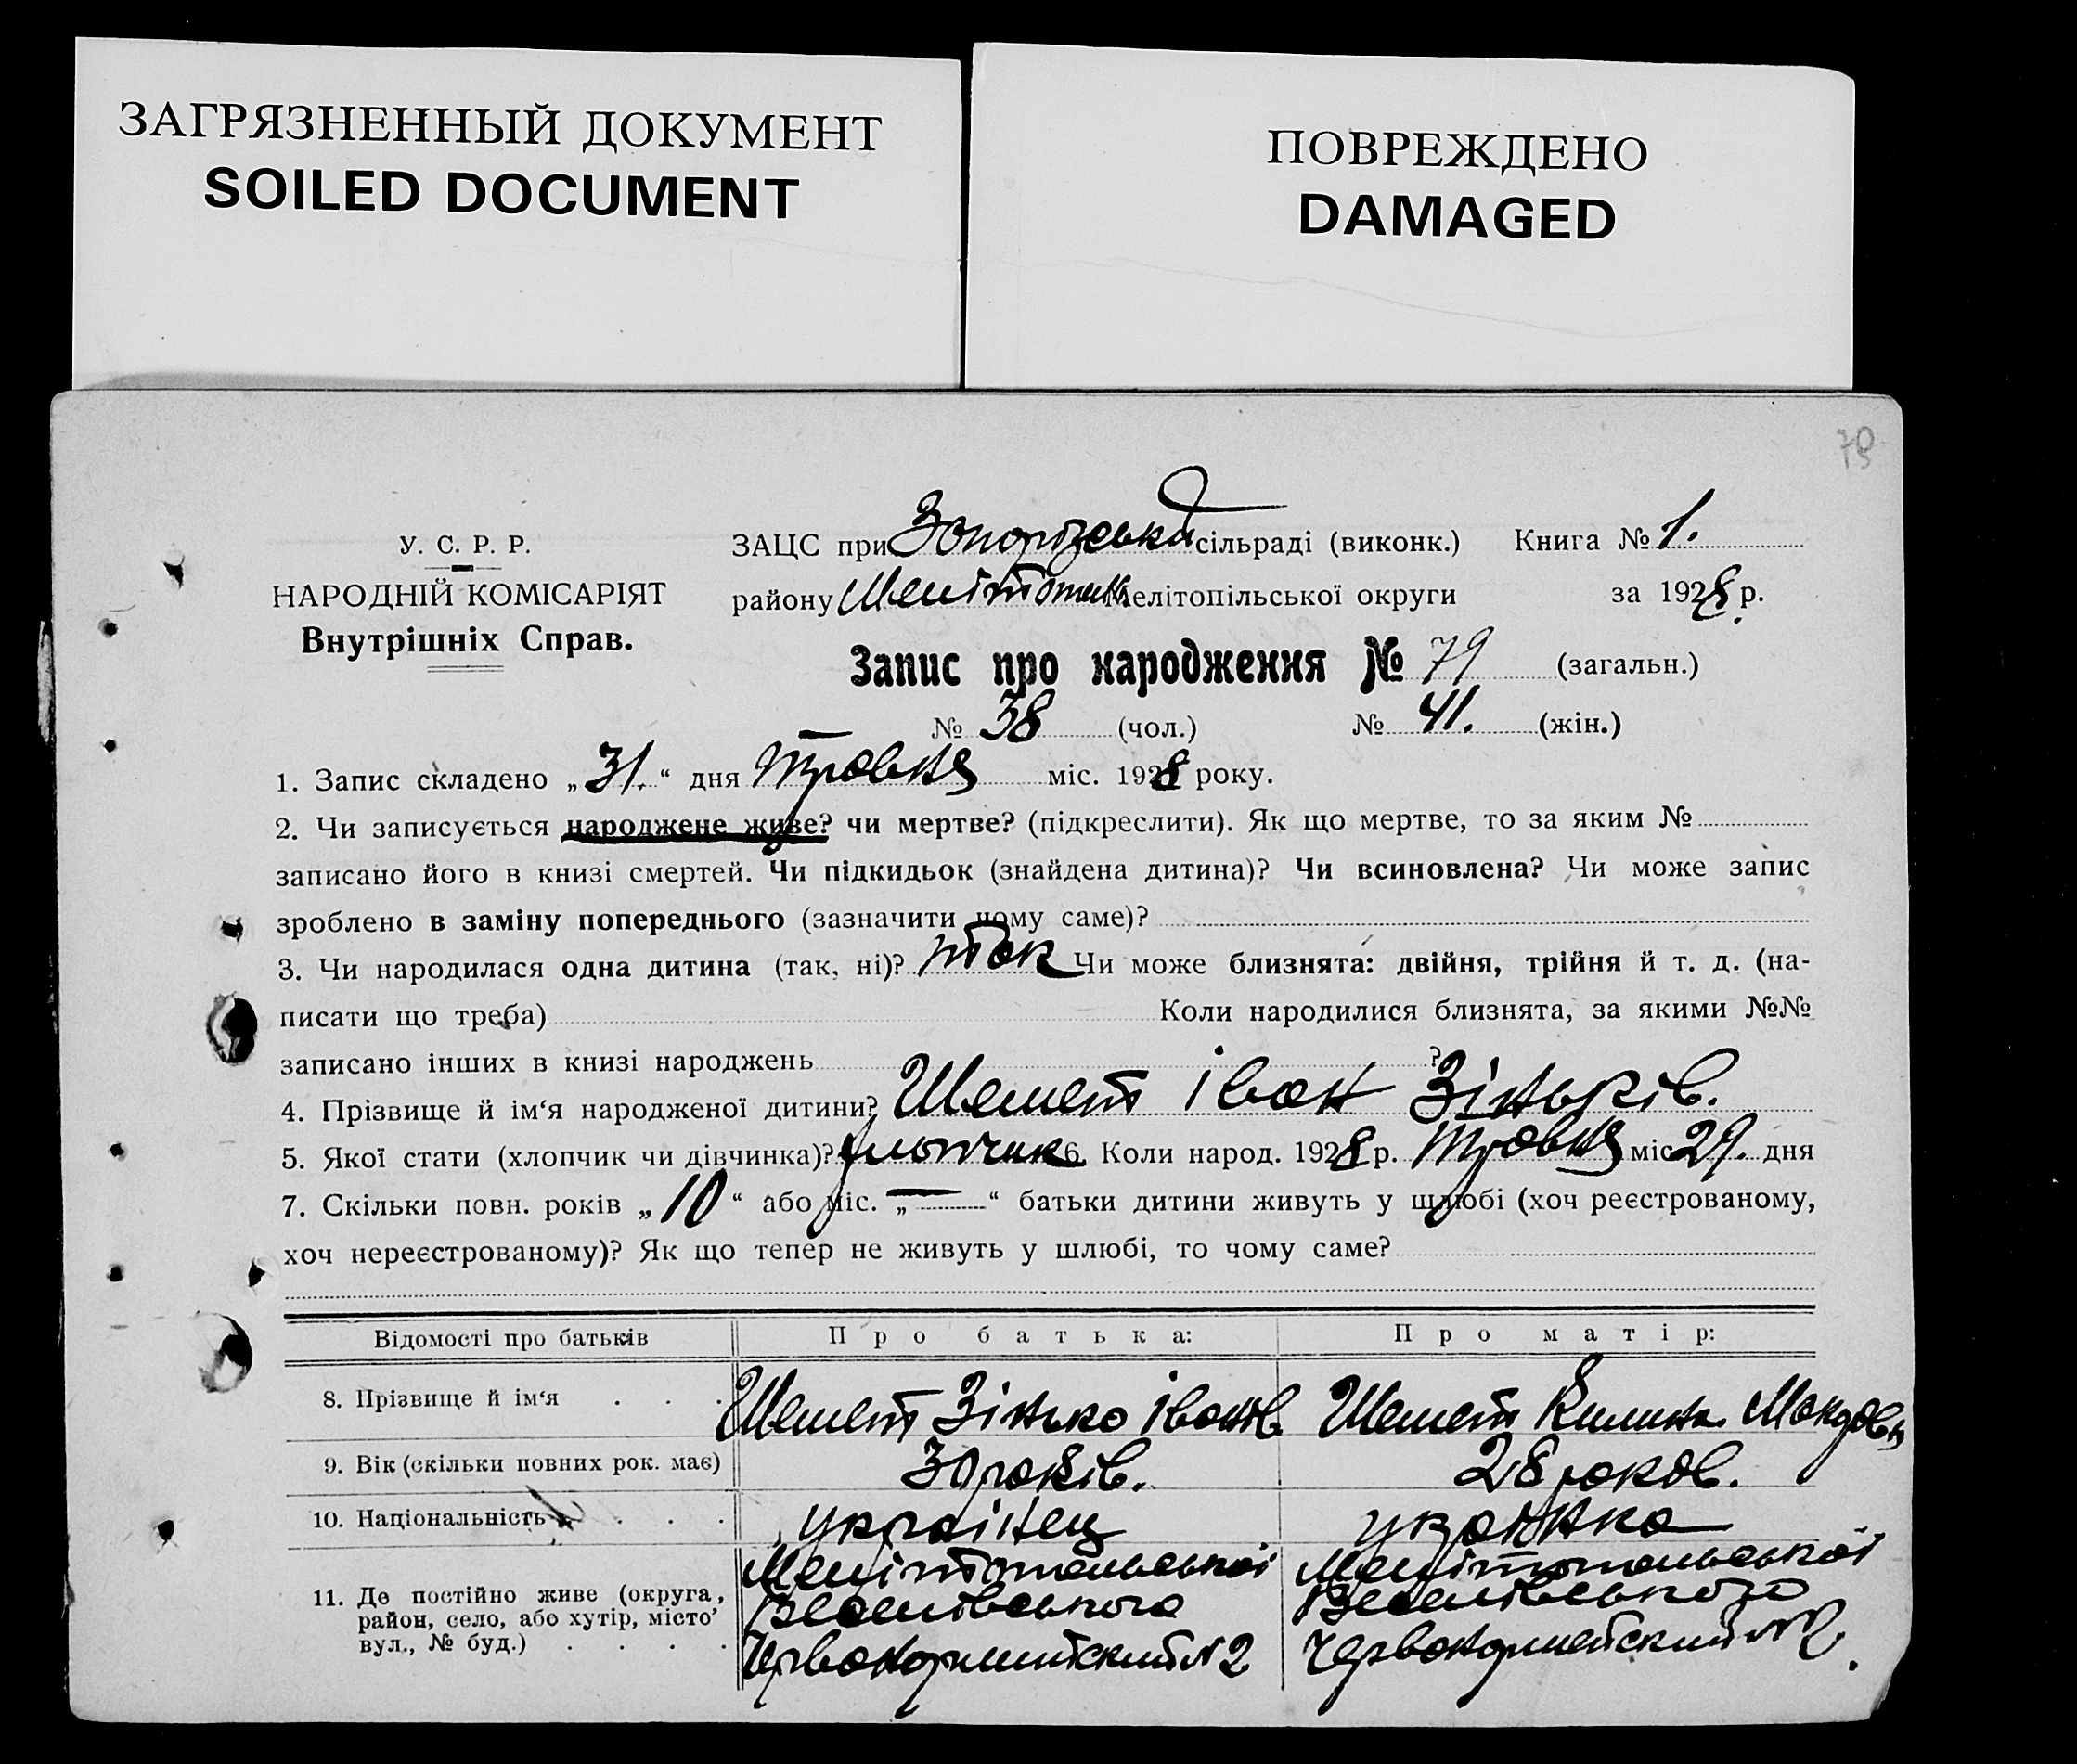 ЗАГРЯЗНЕННЫЙ ДОКУМЕНТ
SOILED DOCUMENT
ПОВРЕЖДЕНО
DAMAGED
79
У. С. Р. Р.
НАРОДНІЙ КОМІСАРІЯТ
Внутрішніх Справ.
ЗАЦС при Запорізській сільраді (виконк.) Книга № 1.
району Мелітоп Мелітопільської округи за 1928 р.
Запис про народження № 79 (загальн.)
№ 38 (чол.) № 41. (жін.)
1. Запис складено „31.“ дня травня міс. 1928 року.
2. Чи записується народжене живе? чи мертве? (підкреслити). Як що мертве, то за яким №
записано його в книзі смертей. Чи підкидьок (знайдена дитина)? Чи всиновлена? Чи може запис
зроблено в заміну попереднього (зазначити чому саме)?
3. Чи народилася одна дитина (так, ні)? так Чи може близнята: двійня, трійня й т. д. (на-
писати що треба) Коли народилися близнята, за якими №№
записано інших в книзі народжень ?
4. Прізвище й ім‘я народженої дитини? Шемет Іван Зіньків.
5. Якої стати (хлопчик чи дівчинка)? хлопчик 6. Коли народ. 1928 р. травня міс 29. дня
7. Скільки повн. років „10“ або міс. „—“ батьки дитини живуть у шлюбі (хоч реєстрованому,
хоч нереєстрованому)? Як що тепер не живуть у шлюбі, то чому саме?
Відомості про батьків Про батька: Про матір:
8. Прізвище й ім‘я . . . Шемет Зінько Іванів. Шемет Килина
9. Вік (скільки повних рок. має) 30 років. 28 роков.
10. Національність . . . українец українка
11. Де постійно живе (округа, район, село, або хутір, місто вул., № буд.) . . . .
Мелітопольської Мелітопольської
Веселівського Веселівського
Червоноармейский №2 Червоноармейский №2.